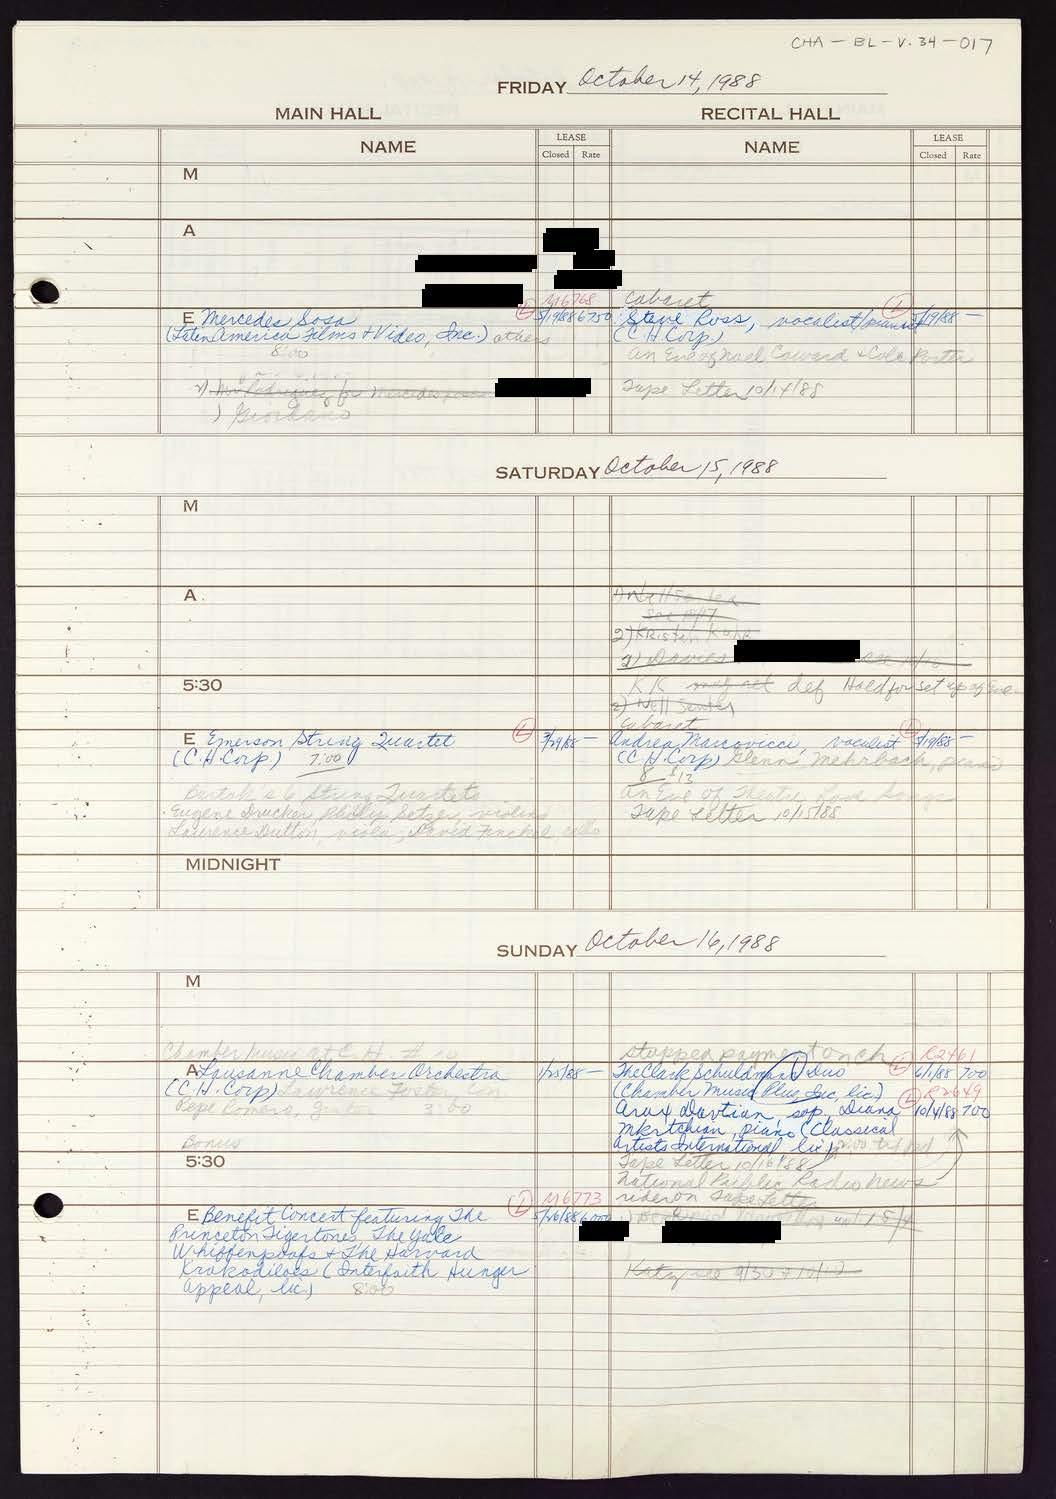 CHA - BL - V. 34 - 017
FRIDAY October 14, 1988
MAIN HALL
RECITAL HALL
NAME
LEASE
Closed Rate
NAME
LEASE
Closed Rate
M
A
M6768
E Mercedes Sosa 5/19/88 6750
(Latin America Films & Video, Inc.) others
8:00
for Mercedes
) Giordano
Cabaret
Steve Ross, vocalist/pianist 5/19/88 —
(C.H. Corp)
An Eve of Noel Coward & Cole Porter
Tape Letter 10/14/88
SATURDAY October 15, 1988
M
A
See 10/17
2) Kristen
2) Davies
5:30
KK def Hold for set up of Eve
Cabaret
E Emerson String Quartet 3/29/88 —
(C.H. Corp) 7:00
Bartok's 6 String Quartets
Eugene Drucker, Philip Setzer, violins
Lawrence Dutton, viola, David Finckel, cello
Andrea Marcovicci, vocalist 5/19/88 —
(C.H. Corp) Glenn Mehrbach, piano
8 $12
An Eve of Theatre Songs
Tape Letter 10/15/88
MIDNIGHT
SUNDAY October 16, 1988
M
Chamber Music at C.H. # 
A Lausanne Chamber Orchestra 1/25/88 —
(C.H. Corp) Lawrence Foster, con
Pepe Romero, guitar 3:00
Bonus
stopped payment on ch R2461
The Clark Schuldmann Duo L 6/1/88 700
(Chamber Music Plus Inc, lic.) L R2649
Arax Davtian, sop, Diana 10/4/88 700
Mkrtchian, piano (Classical
Artists International lic)
5:30
Tape Letter 10/16/88
National Public Radio News
rider on Tape Letter
L M6773
E Benefit Concert featuring The 5/26/88 6000
Princeton Tigertones, The Yale
Whiffenpoofs & The Harvard
Krokodiloes (Interfaith Hunger
Appeal, lic) 8:00
9/30 & 10/10